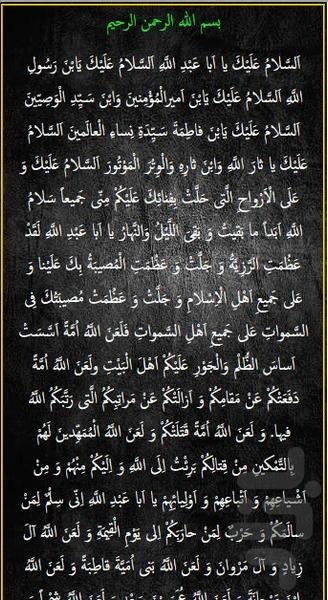 بسم الله الرحمن الرحیم
اَلسَّلامُ عَلَیْكَ یا اَبا عَبْدِ اللَّهِ اَلسَّلامُ عَلَیْكَ یَابْنَ رَسُولِ
اللَّهِ اَلسَّلامُ عَلَیْكَ یَابْنَ اَمیرِالْمُؤْمِنینَ وَابْنَ سَیِّدِ الْوَصِیّینَ
اَلسَّلامُ عَلَیْكَ یَابْنَ فاطِمَةَ سَیِّدَةِ نِساءِ الْعالَمینَ اَلسَّلامُ
عَلَیْكَ یا ثارَ اللَّهِ وَابْنَ ثارِهِ وَالْوِتْرَ الْمَوْتُورَ اَلسَّلامُ عَلَیْكَ وَ
عَلَی الْاَرْواحِ الَّتی حَلَّتْ بِفِنائِكَ عَلَیْكُمْ مِنّی جَمیعاً سَلامُ
اللَّهِ اَبَداً ما بَقیتُ وَ بَقِیَ اللَّیْلُ وَالنَّهارُ یا اَبا عَبْدِ اللَّهِ لَقَدْ
عَظُمَتِ الرَّزِیَّةُ وَ جَلَّتْ وَ عَظُمَتِ الْمُصیبَةُ بِكَ عَلَیْنا وَ
عَلی جَمیعِ اَهْلِ الْاِسْلامِ وَ جَلَّتْ وَ عَظُمَتْ مُصیبَتُكَ فِی
السَّمواتِ عَلی جَمیعِ اَهْلِ السَّمواتِ فَلَعَنَ اللَّهُ اُمَّةً اَسَّسَتْ
اَساسَ الظُّلْمِ وَالْجَوْرِ عَلَیْكُمْ اَهْلَ الْبَیْتِ وَلَعَنَ اللَّهُ اُمَّةً
دَفَعَتْكُمْ عَنْ مَقامِكُمْ وَ اَزالَتْكُمْ عَنْ مَراتِبِكُمُ الَّتی رَتَّبَكُمُ اللَّهُ
فیها. وَ لَعَنَ اللَّهُ اُمَّةً قَتَلَتْكُمْ وَ لَعَنَ اللَّهُ الْمُمَهِّدینَ لَهُمْ
بِالتَّمْكینِ مِنْ قِتالِكُمْ بَرِئْتُ اِلَی اللَّهِ وَ اِلَیْكُمْ مِنْهُمْ وَ مِنْ
اَشْیاعِهِمْ وَ اَتْباعِهِمْ وَ اَوْلِیائِهِمْ یا اَبا عَبْدِ اللَّهِ اِنّی سِلْمٌ لِمَنْ
سالَمَكُمْ وَ حَرْبٌ لِمَنْ حارَبَكُمْ اِلی یَوْمِ الْقِیمَةِ وَ لَعَنَ اللَّهُ آلَ
زِیادٍ وَ آلَ مَرْوانَ وَ لَعَنَ اللَّهُ بَنی اُمَیَّةَ قاطِبَةً وَ لَعَنَ اللَّهُ